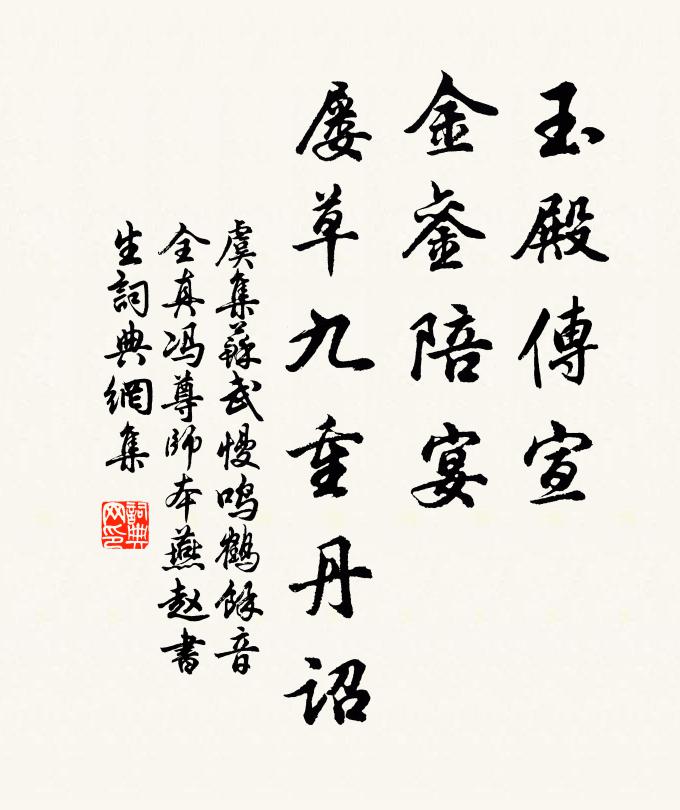 玉殿傳宣
金銮陪宴
屡草九重丹詔
虞集蘇武慢鸣鶴餘音
全真冯尊師本燕赵書
生詞典網集
詞典
网印